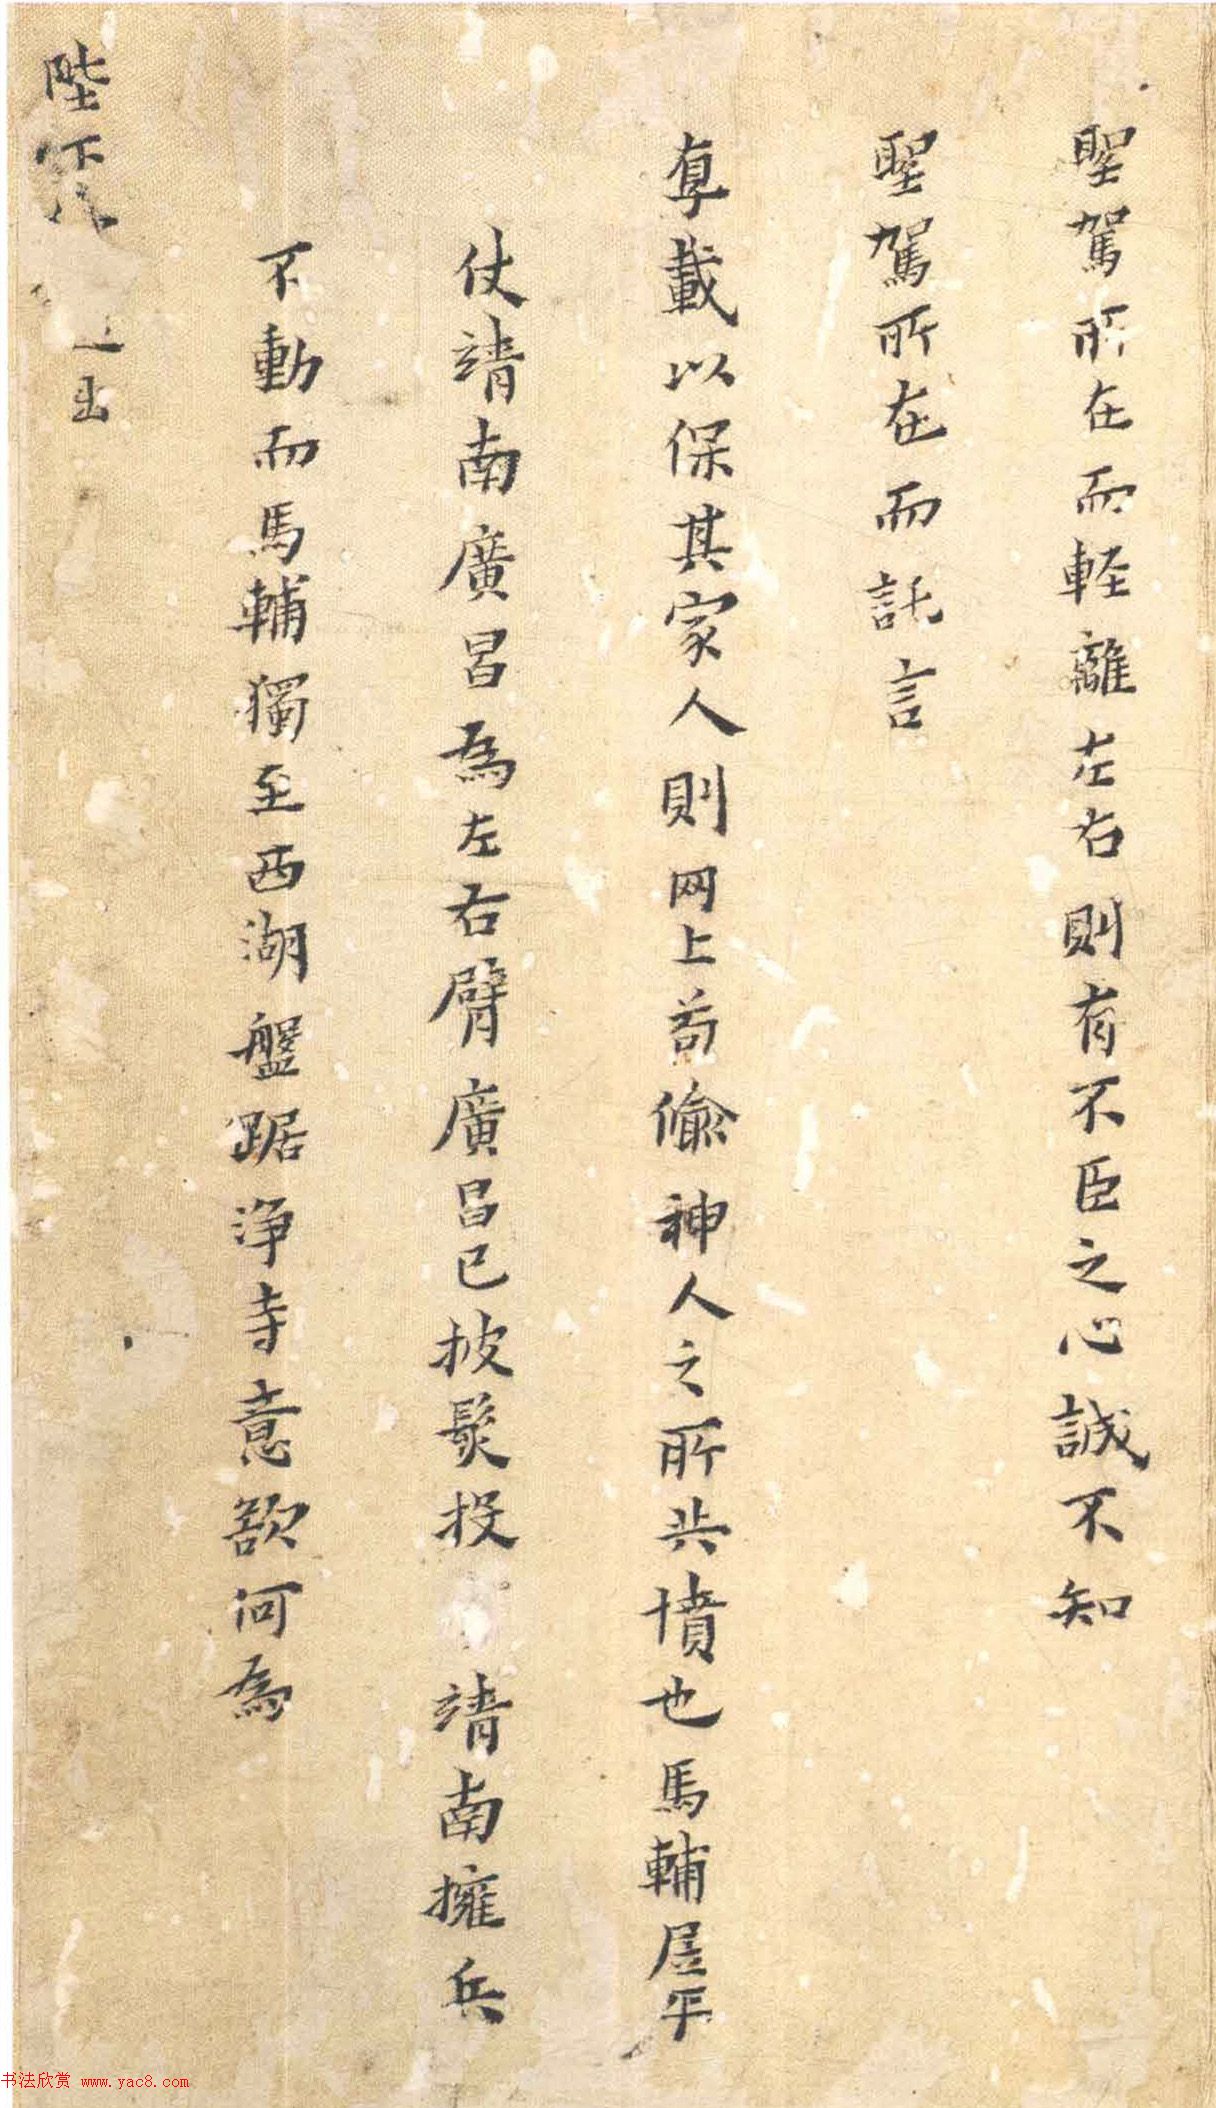 聖駕所在而軽離左右則有不臣之心誠不知
聖駕所在而託言
載以保其家人則网上苟偷神人之所共憤也馬輔居平
仗靖南廣昌為左右臂廣昌已披髮投靖南擁兵
不動而馬輔獨至西湖盤踞浄寺意欲何為
陛下
出
书法欣赏 www.yac8.com